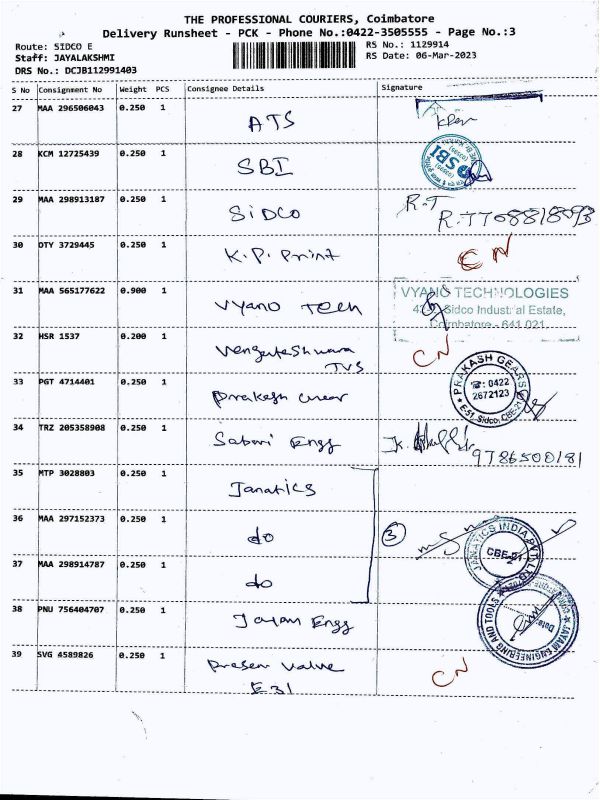 THE PROFESSIONAL COURIERS, Coimbatore
Delivery Runsheet - PCK - Phone No.:0422-3505555 - Page No.:3
Route: SIDCO E
RS No.: 1129914
Staff: JAYALAKSHMI
RS Date: 06-Mar-2023
DRS No.: DCJB112991403
S No Consignment No Weight PCS Consignee Details Signature
27 MAA 296506043 0.250 1 ATS
28 KCM 12725439 0.250 1 SBI
SBI
29 MAA 298913187 0.250 1 SiDCO R.T
R.T7708818093
30 DTY 3729445 0.250 1 K.P. Print CN
31 MAA 565177622 0.900 1 Vyano Tech
VYANO TECHNOLOGIES
Sidco Industrial Estate,
Coimbatore - 641 021
32 HSR 1537 0.200 1 Vengateshwara CN
TVS
33 PGT 4714401 0.250 1 Prakash Gear
PRAKASH GEARS
☎: 0422
2672123
E-51, Sidco, CBE-21
34 TRZ 205358908 0.250 1 Sabari Engg
9786500181
35 MTP 3028803 0.250 1 Janatics
36 MAA 297152373 0.250 1 do 3
JANATICS INDIA PVT. LTD.
CBE-21
37 MAA 298914787 0.250 1 do
38 PNU 756404707 0.250 1 Jayam Engg
JAYAM ENGINEERING AND TOOLS
Date
39 SVG 4589826 0.250 1 Presen Valve CN
E31